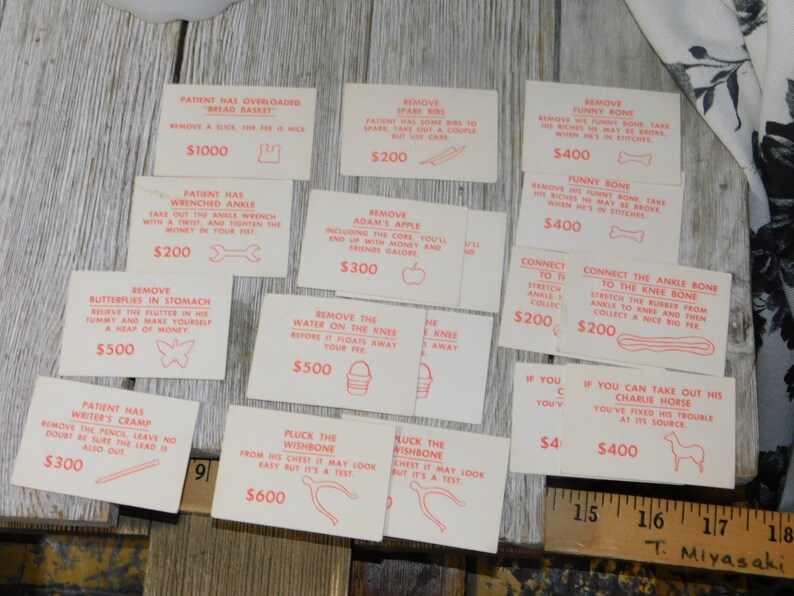 PATIENT HAS OVERLOADED
"BREAD BASKET"
REMOVE A SLICE, THE FEE IS NICE
$1000
REMOVE
SPARE RIBS
PATIENT HAS SOME RIBS TO
SPARE, TAKE OUT A COUPLE,
BUT USE CARE.
$200
REMOVE
FUNNY BONE
REMOVE HIS FUNNY BONE, TAKE
HIS RICHES HE MAY BE BROKE,
WHEN HE'S IN STITCHES.
$400
PATIENT HAS
WRENCHED ANKLE
TAKE OUT THE ANKLE WRENCH
WITH A TWIST, AND TIGHTEN THE
MONEY IN YOUR FIST.
$200
REMOVE
ADAM'S APPLE
INCLUDING THE CORE, YOU'LL
END UP WITH MONEY AND
FRIENDS GALORE.
$300
FUNNY BONE
REMOVE HIS FUNNY BONE, TAKE
HIS RICHES HE MAY BE BROKE,
WHEN HE'S IN STITCHES.
$400
REMOVE
BUTTERFLIES IN STOMACH
RELIEVE THE FLUTTER IN HIS
TUMMY AND MAKE YOURSELF
A HEAP OF MONEY.
$500
REMOVE THE
WATER ON THE KNEE
BEFORE IT FLOATS AWAY
YOUR FEE.
$500
THE
THE KNEE
S AWAY
CONNECT
TO TH
STRETCH
ANKLE T
COLLECT
$200
CONNECT THE ANKLE BONE
TO THE KNEE BONE
STRETCH THE RUBBER FROM
ANKLE TO KNEE AND THEN
COLLECT A NICE BIG FEE.
$200
PATIENT HAS
WRITER'S CRAMP
REMOVE THE PENCIL, LEAVE NO
DOUBT BE SURE THE LEAD IS
ALSO OUT.
$300
PLUCK THE
WISHBONE
FROM HIS CHEST IT MAY LOOK
EASY BUT IT'S A TEST.
$600
PLUCK THE
WISHBONE
CHEST IT MAY LOOK
BUT IT'S A TEST.
IF YOU C
$40
IF YOU CAN TAKE OUT HIS
CHARLIE HORSE
YOU'VE FIXED HIS TROUBLE
AT ITS SOURCE.
$400
9
15 16 17 18
T. Miyasaki